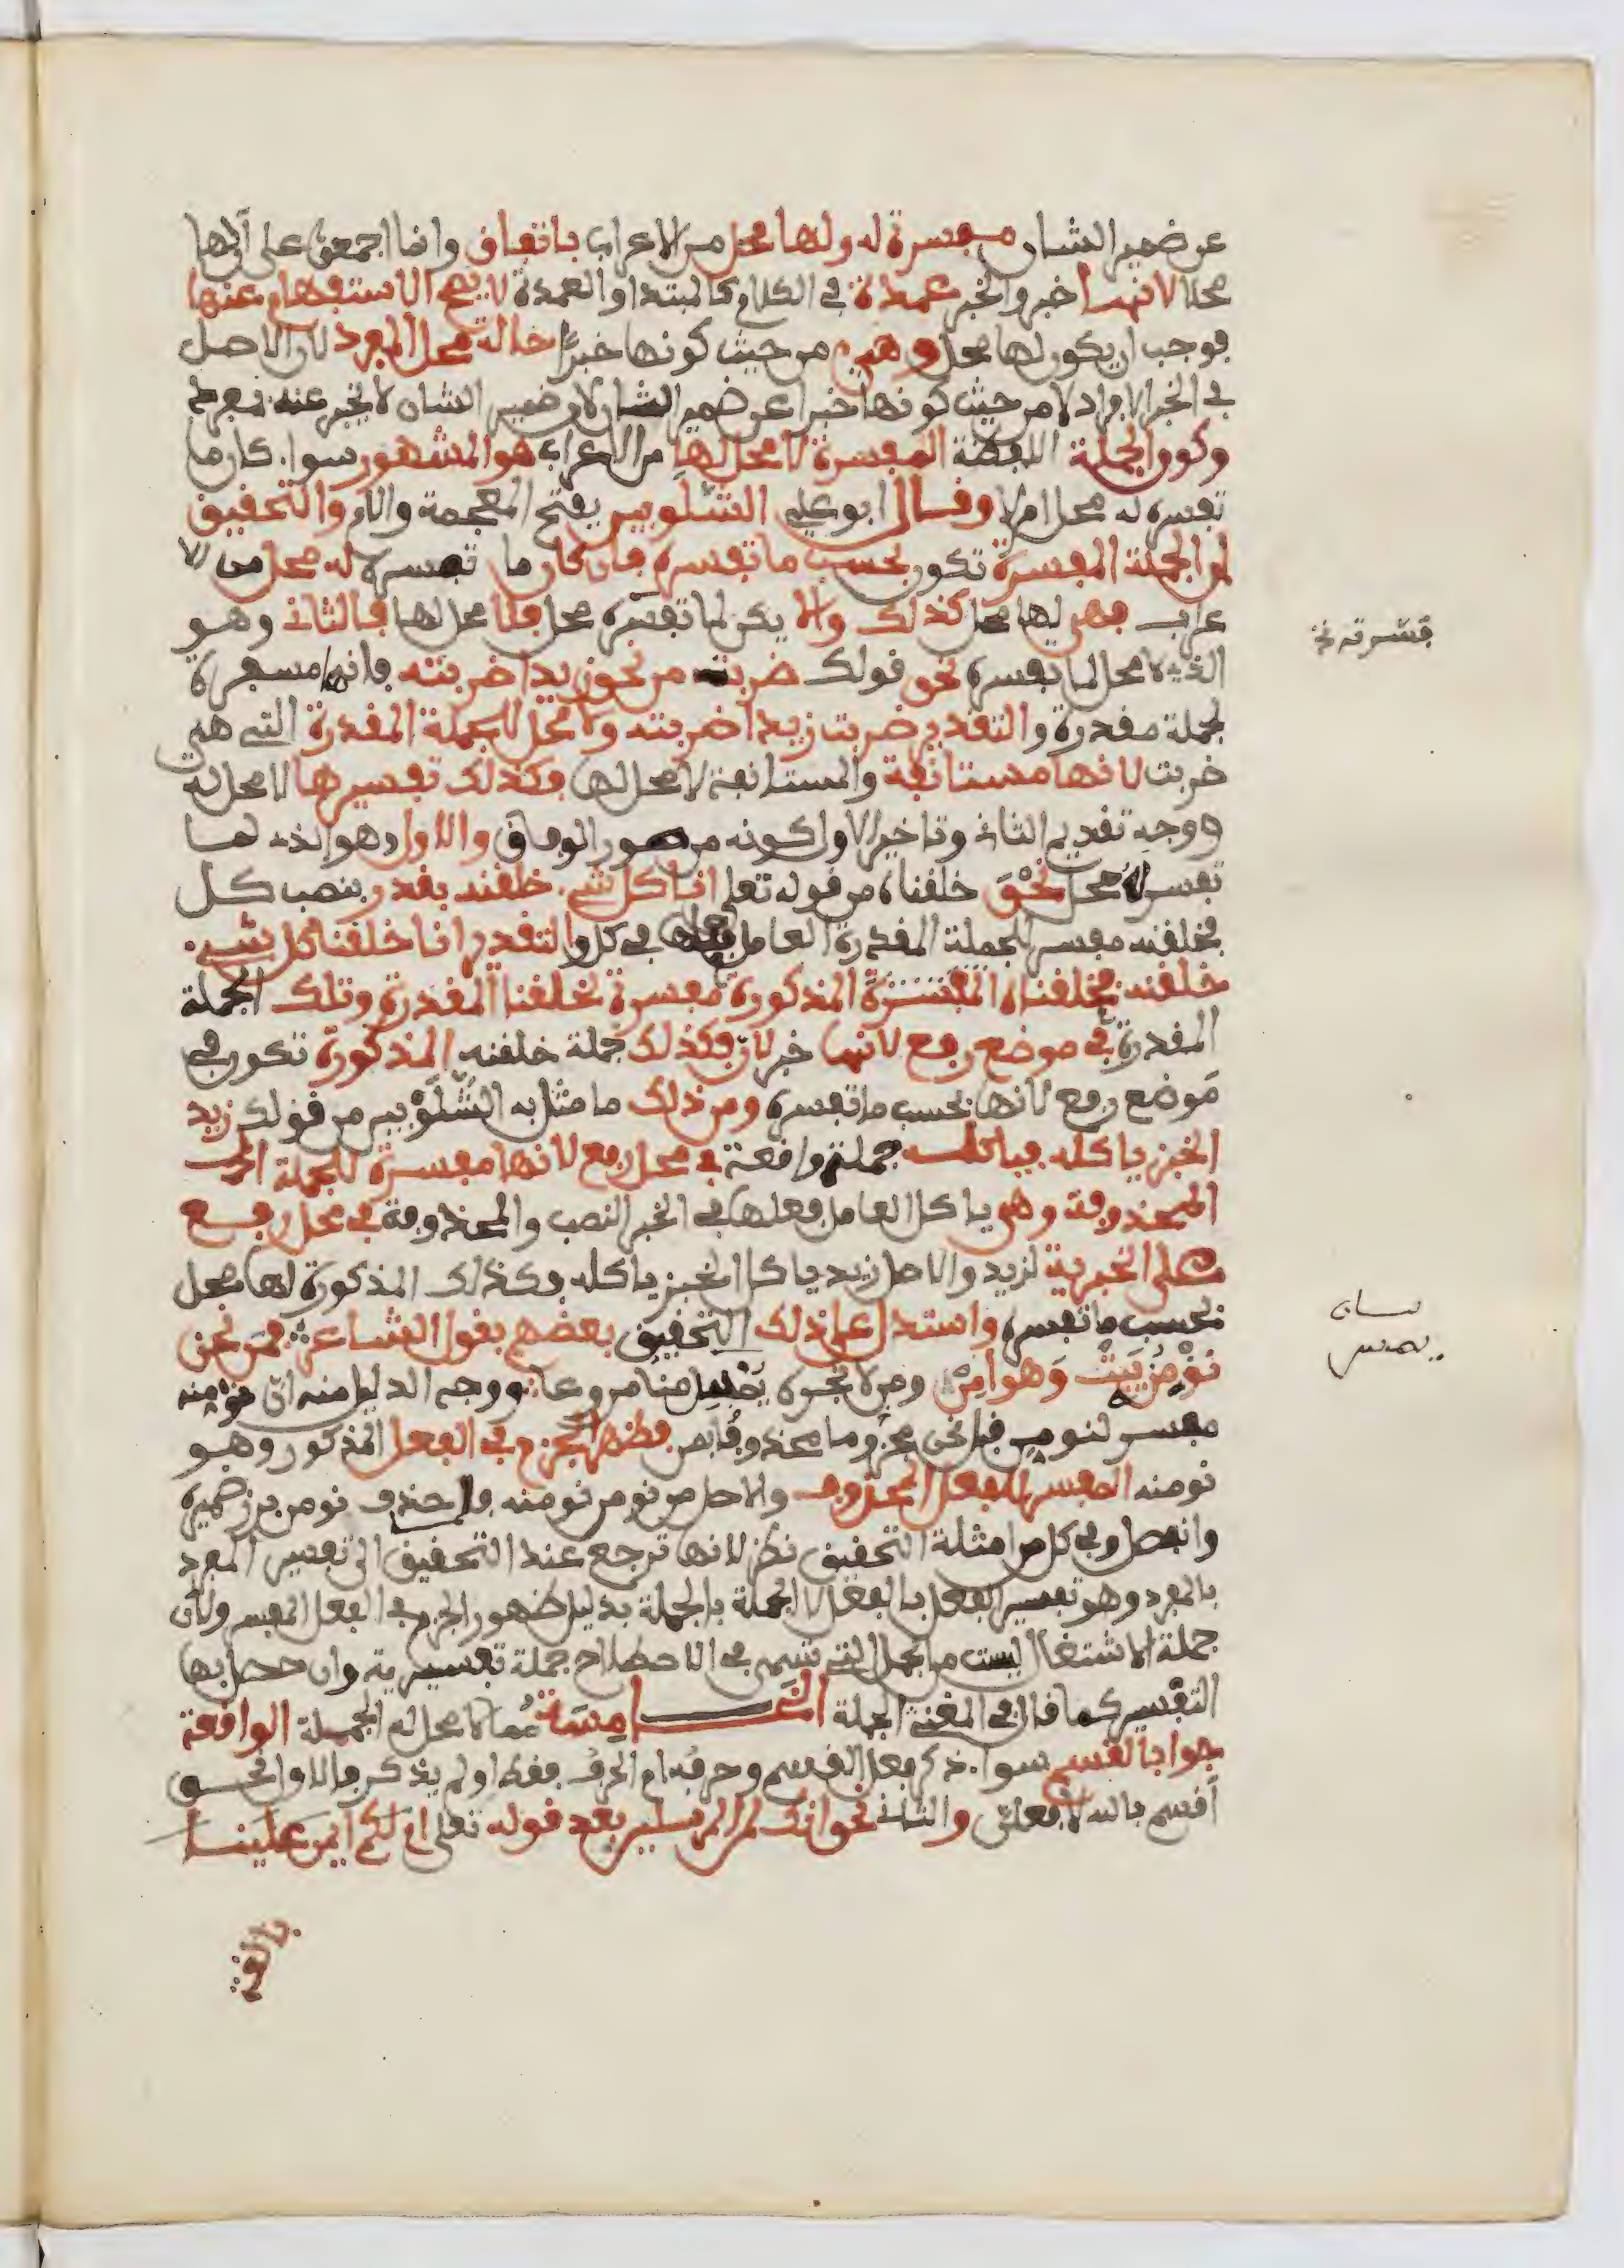 عن ضمير الشان مفسرة له ولها محل من الاعراب باتفاق وانما اجمعوا على ان لها
محلا لانها خبر والخبر عمدة في الكلام كالمبتدا والعمدة لا يصح الاستغناء عنها
فوجب ان يكون لها محل وهي من حيث كونها خبرا حالة محل المفرد لان الاصل
في الخبر الافراد لا من حيث كونها خبرا عن ضمير الشان لان ضمير الشان لا يخبر عنه بمفرد
وكون الجملة الفضلة المفسرة لا محل لها من الاعراب هو المشهور سواء كان ما
تفسره له محل ام لا وقال ابو علي الشلوبين بفتح المعجمة واللام والتحقيق
ان الجملة المفسرة تكون بحسب ما تفسره فان كان ما تفسره له محل من الا
عراب فهي لها محل كذلك والا يكن لما تفسره محل فلا محل لها فالثاني وهو
الذي لا محل لما تفسره نحو قولك ضربته من نحو زيدا ضربته فانها مفسرة
لجملة مقدرة والتقدير ضربت زيدا ضربته ولا محل للجملة المقدرة التي هي
ضربت لانها مستانفة والمستانفة لا محل لها فكذلك تفسيرها لا محل له
ووجه تقديم الثاني وتاخير الاول كونه من صور الوفاق والاول وهو الذي لما
تفسره محل نحو خلقناه من قوله تعلى انا كل شيء خلقنه بقدر بنصب كل
فخلقنه مفسر للجملة المقدرة العامل فعلها في كل والتقدير انا خلقنا كل شيء
خلقنه فخلقناه المفسرة المذكورة مفسرة لخلقنا المقدرة وتلك الجملة
المقدرة في موضع رفع لانها خبر لان فكذلك جملة خلقنه المذكورة تكون في
موضع رفع لانها بحسب ما تفسره ومن ذلك ما مثل به الشلوبين من قولك زيد
الخبز ياكله فياكله جملة واقعة في محل رفع لانها مفسرة للجملة
المحذوفة وهي ياكل العامل فعلها في الخبز النصب والمحذوفة في محل رفع
على الخبرية لزيد والاصل زيد ياكل الخبز ياكله فكذلك المذكورة لها محل
بحسب ما تفسره واستدل على ذلك التحقيق بعضهم بقول الشاعر فمن نحن
نؤمنه يبت وهو امن ومن لا نجره يمس منا مروعا ووجه الدليل منه ان نؤمنه
مفسر لنومن قبل نحن مجزوما محذوفا بمن فظهر الجزم في الفعل المذكور وهو
نومنه المفسر للفعل المحذوف والاصل من نومن نومنه فلما حذف نومن برز ضميره
وانفصل وفي كل من امثلة التحقيق نظر لانها ترجع عند التحقيق الى تفسير المفرد
بالمفرد وهو تفسير الفعل بالفعل لا الجملة بالجملة بدليل ظهور الجزم في الفعل المفسر ولان
جملة الاشتغال ليست من الجمل التي تسمى في الاصطلاح جملة تفسيرية وان حصل بها
التفسير كما قال في المغني الجملة الخامسة مما لا محل له الجملة الواقعة
جوابا لقسم سواء ذكر فعل القسم وحرفه ام الحرف فقط او لم يذكر فالاول نحو
اقسم بالله لافعلن والثاني نحو انك لمن المرسلين بعد قوله تعلى ام لكم ايمن علينا
بالغة
فسرته خ